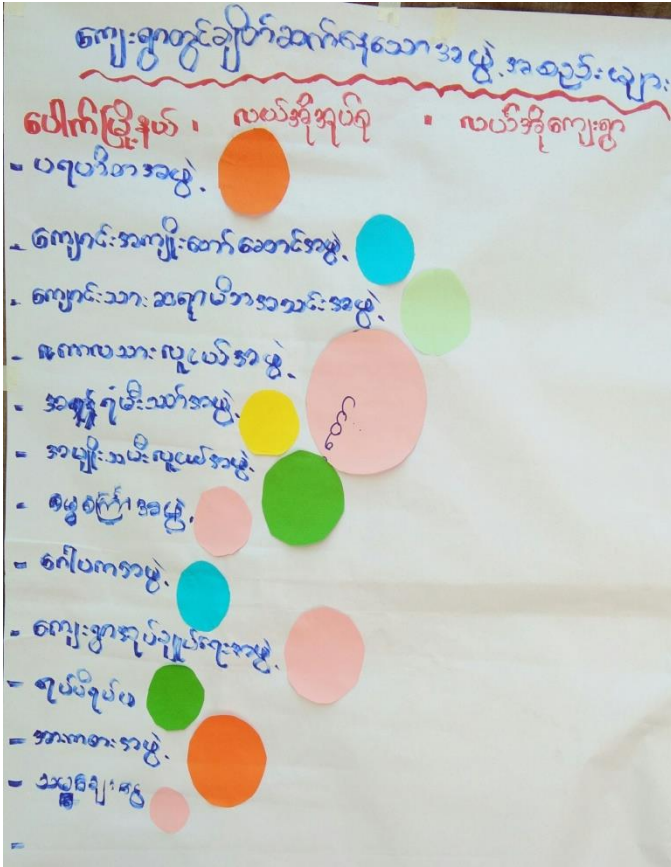 ကျေးရွာတွင်ချိတ်ဆက်နေသောအဖွဲ့အစည်းများ
ပေါက်မြို့နယ် ၊ လယ်အိုအုပ်စု ၊ လယ်အိုကျေးရွာ
- ပရဟိတအဖွဲ့
- ကျောင်းအကျိုးတော်ဆောင်အဖွဲ့
- ကျောင်းသားဆရာမိဘအသင်းအဖွဲ့
- ကာလသားလူငယ်အဖွဲ့
- အရန်မီးသတ်အဖွဲ့
- အမျိုးသမီးလူငယ်အဖွဲ့
- အဖွဲ့
- ဂေါပကအဖွဲ့
- ကျေးရွာအုပ်ချုပ်ရေးအဖွဲ့
- ရပ်မိရပ်ဖ
- အားကစားအဖွဲ့
-